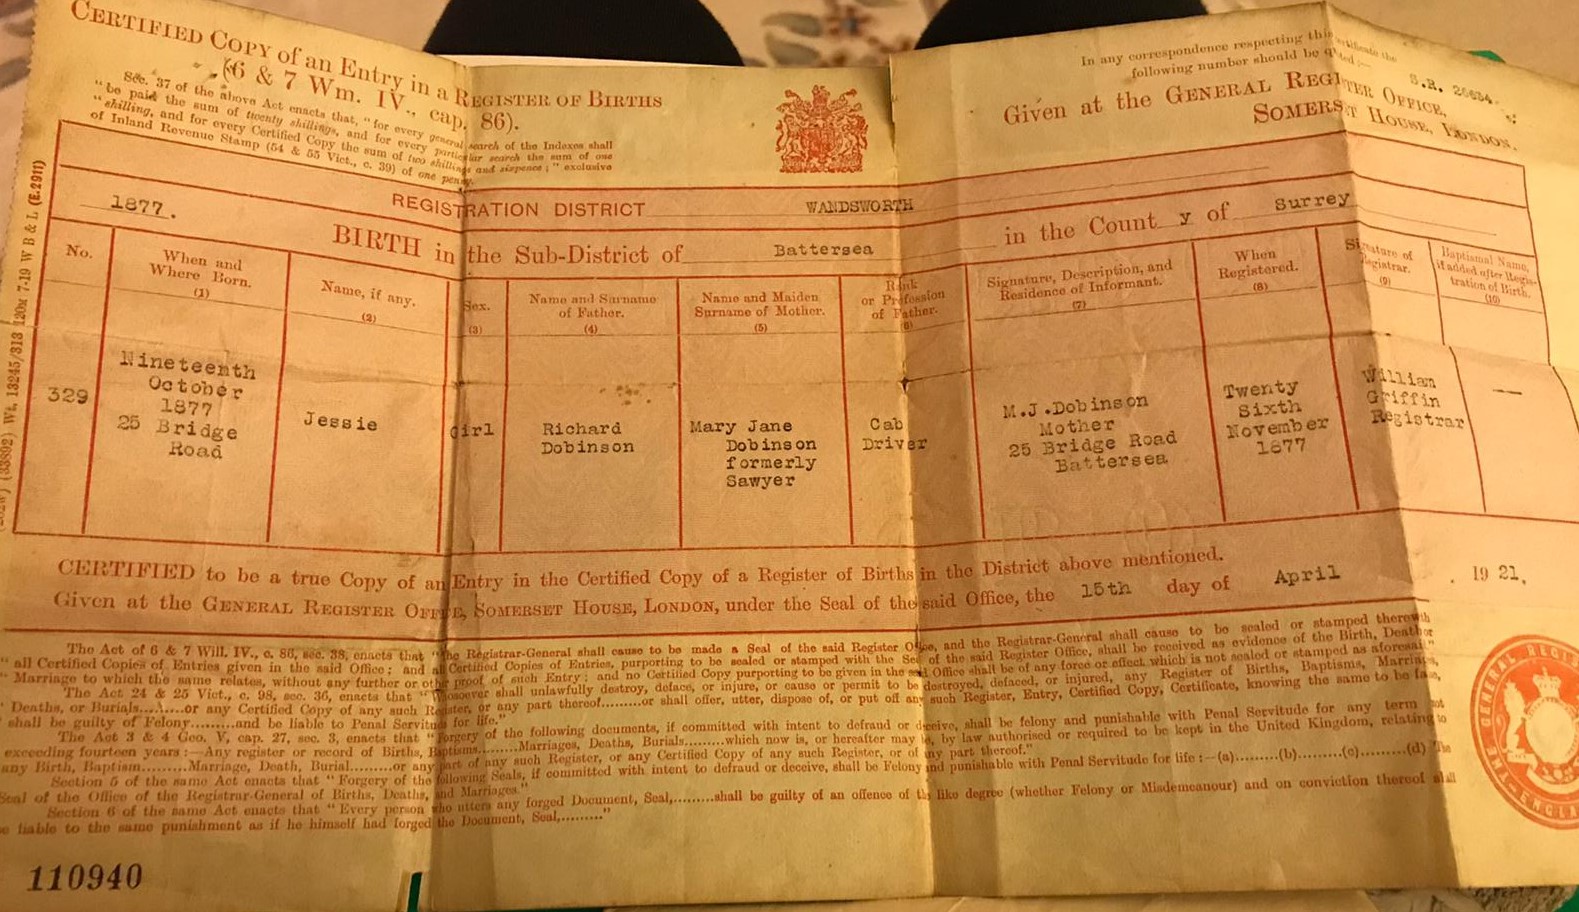 CERTIFIED COPY of an Entry in a REGISTER OF BIRTHS
(6 & 7 Wm. IV., cap. 86).
Sec. 37 of the above Act enacts that, "for every general search of the Indexes shall
"be paid the sum of twenty shillings, and for every particular search the sum of one
"shilling, and for every Certified Copy the sum of two shillings and sixpence;" exclusive
of Inland Revenue Stamp (54 & 55 Vict., c. 39) of one penny.
In any correspondence respecting this certificate the
following number should be quoted:—
S.R. 26634
Given at the GENERAL REGISTER OFFICE,
SOMERSET HOUSE, LONDON.
REGISTRATION DISTRICT WANDSWORTH
1877. BIRTH in the Sub-District of Battersea in the County of Surrey
No.
When and Where Born. (1)
Name, if any. (2)
Sex. (3)
Name and Surname of Father. (4)
Name and Maiden Surname of Mother. (5)
Rank or Profession of Father. (6)
Signature, Description, and Residence of Informant. (7)
When Registered. (8)
Signature of Registrar. (9)
Baptismal Name, if added after Registration of Birth. (10)
329
Nineteenth
October
1877
25 Bridge
Road
Jessie
Girl
Richard
Dobinson
Mary Jane
Dobinson
formerly
Sawyer
Cab
Driver
M.J.Dobinson
Mother
25 Bridge Road
Battersea
Twenty
Sixth
November
1877
William
Griffin
Registrar
—
CERTIFIED to be a true Copy of an Entry in the Certified Copy of a Register of Births in the District above mentioned.
Given at the GENERAL REGISTER OFFICE, SOMERSET HOUSE, LONDON, under the Seal of the said Office, the 15th day of April 1921.
The Act of 6 & 7 Will. IV., c. 86, sec. 38, enacts that "the Registrar-General shall cause to be made a Seal of the said Register Office, and the Registrar-General shall cause to be sealed or stamped therewith
"all Certified Copies of Entries given in the said Office; and all Certified Copies of Entries, purporting to be sealed or stamped with the Seal of the said Register Office, shall be received as evidence of the Birth, Death or
"Marriage to which the same relates, without any further or other proof of such Entry; and no Certified Copy purporting to be given in the said Office shall be of any force or effect which is not sealed or stamped as aforesaid."
The Act 24 & 25 Vict., c. 98, sec. 36, enacts that "Whosoever shall unlawfully destroy, deface, or injure, or cause or permit to be destroyed, defaced, or injured, any Register of Births, Baptisms, Marriages,
"Deaths, or Burials.........or any Certified Copy of any such Register, or any part thereof.........or shall offer, utter, dispose of, or put off any such Register, Entry, Certified Copy, Certificate, knowing the same to be false,
"shall be guilty of Felony.........and be liable to Penal Servitude for life."
The Act 3 & 4 Geo. V, cap. 27, sec. 3, enacts that "Forgery of the following documents, if committed with intent to defraud or deceive, shall be felony and punishable with Penal Servitude for any term not
exceeding fourteen years:—Any register or record of Births, Baptisms.........Marriages, Deaths, Burials.........which now is, or hereafter may be, by law authorised or required to be kept in the United Kingdom, relating to
any Birth, Baptism.........Marriage, Death, Burial.........or any part of any such Register, or any Certified Copy of any such Register, or of any part thereof."
Section 5 of the same Act enacts that "Forgery of the following Seals, if committed with intent to defraud or deceive, shall be Felony and punishable with Penal Servitude for life:—(a).........(b).........(c).........(d) The
Seal of the Office of the Registrar-General of Births, Deaths, and Marriages."
Section 6 of the same Act enacts that "Every person who utters any forged Document, Seal,.........shall be guilty of an offence of the like degree (whether Felony or Misdemeanour) and on conviction thereof shall
be liable to the same punishment as if he himself had forged the Document, Seal,........."
110940
Wt. 13245/313 120M 7-19 W B & L (E.2911)